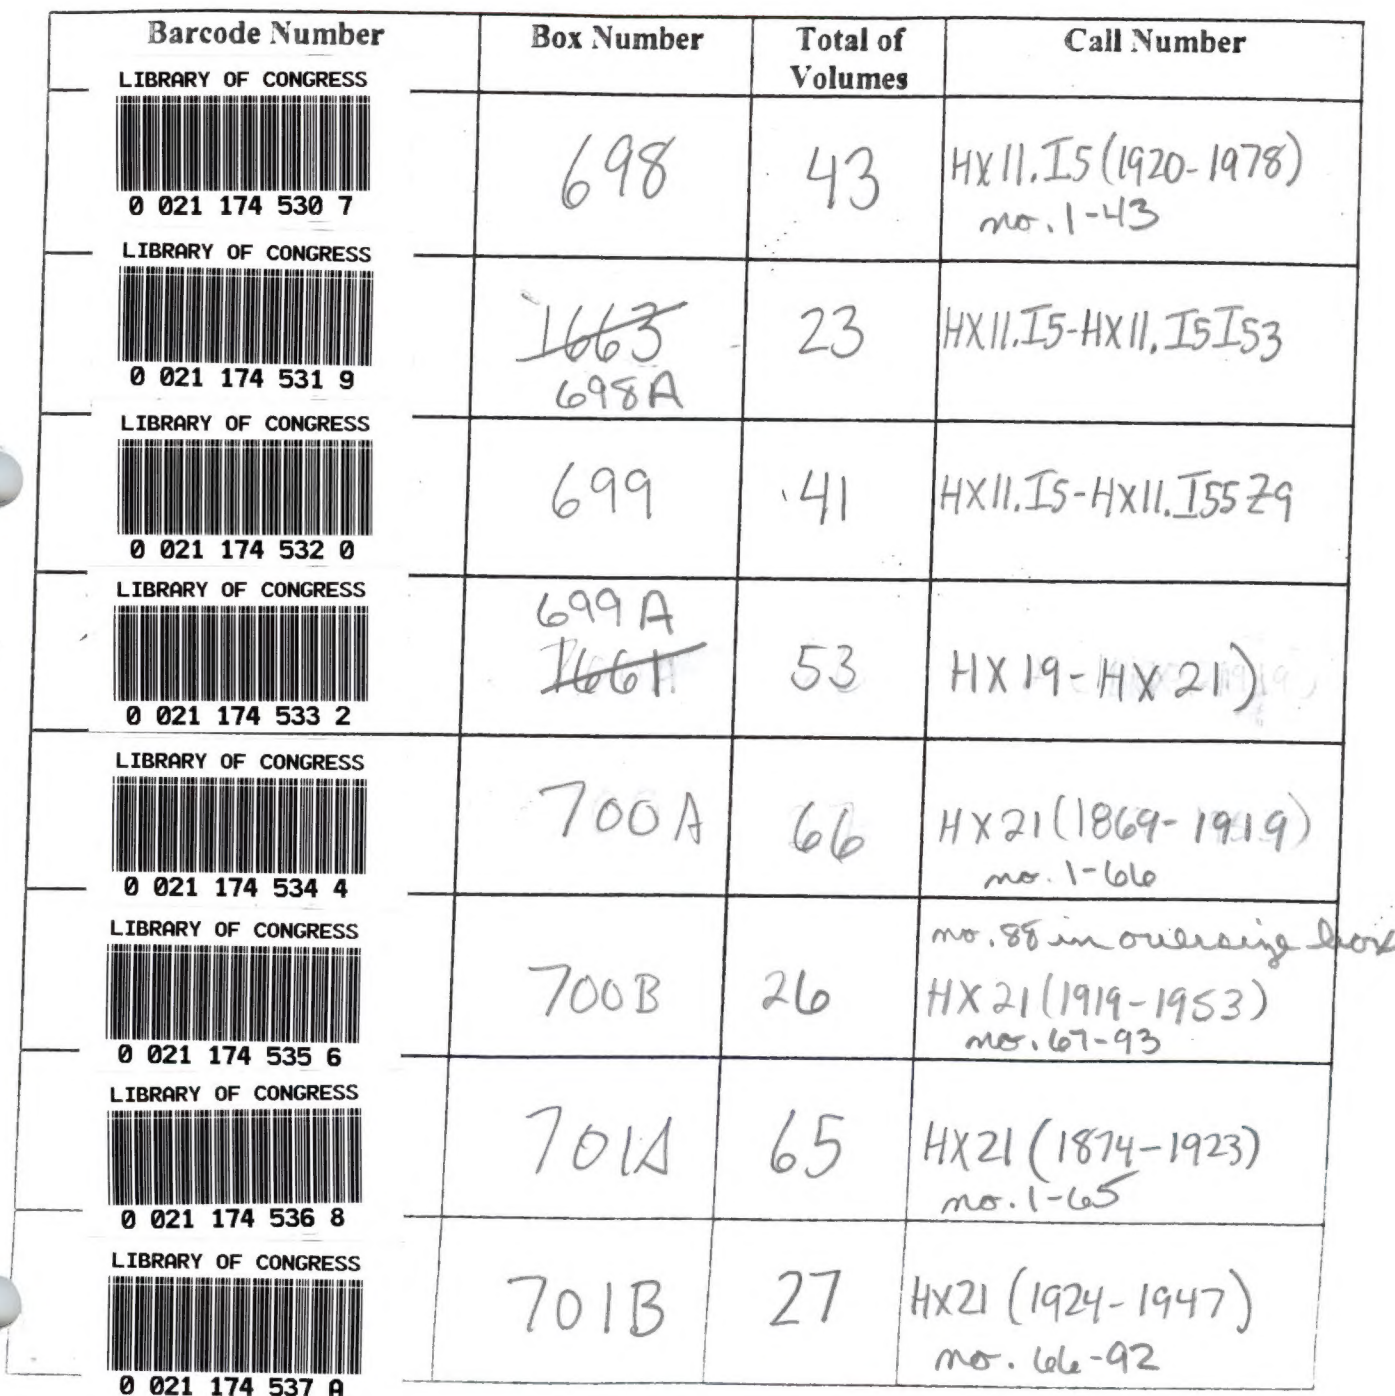 Barcode Number Box Number Total of Volumes Call Number
LIBRARY OF CONGRESS
0 021 174 530 7
698 43 HX11.I5 (1920-1978)
no. 1-43
LIBRARY OF CONGRESS
0 021 174 531 9
1663
698A
23 HX11.I5-HX11.I5I53
LIBRARY OF CONGRESS
0 021 174 532 0
699 41 HX11.I5-HX11.I55Z9
LIBRARY OF CONGRESS
0 021 174 533 2
699A
1661
53 HX19-HX21)
LIBRARY OF CONGRESS
0 021 174 534 4
700A 66 HX21(1869-1919)
no. 1-66
LIBRARY OF CONGRESS
0 021 174 535 6
700B 26 no. 88 in oversize box
HX21(1919-1953)
no. 67-93
LIBRARY OF CONGRESS
0 021 174 536 8
701A 65 HX21 (1874-1923)
no. 1-65
LIBRARY OF CONGRESS
0 021 174 537 A
701B 27 HX21 (1924-1947)
no. 66-92